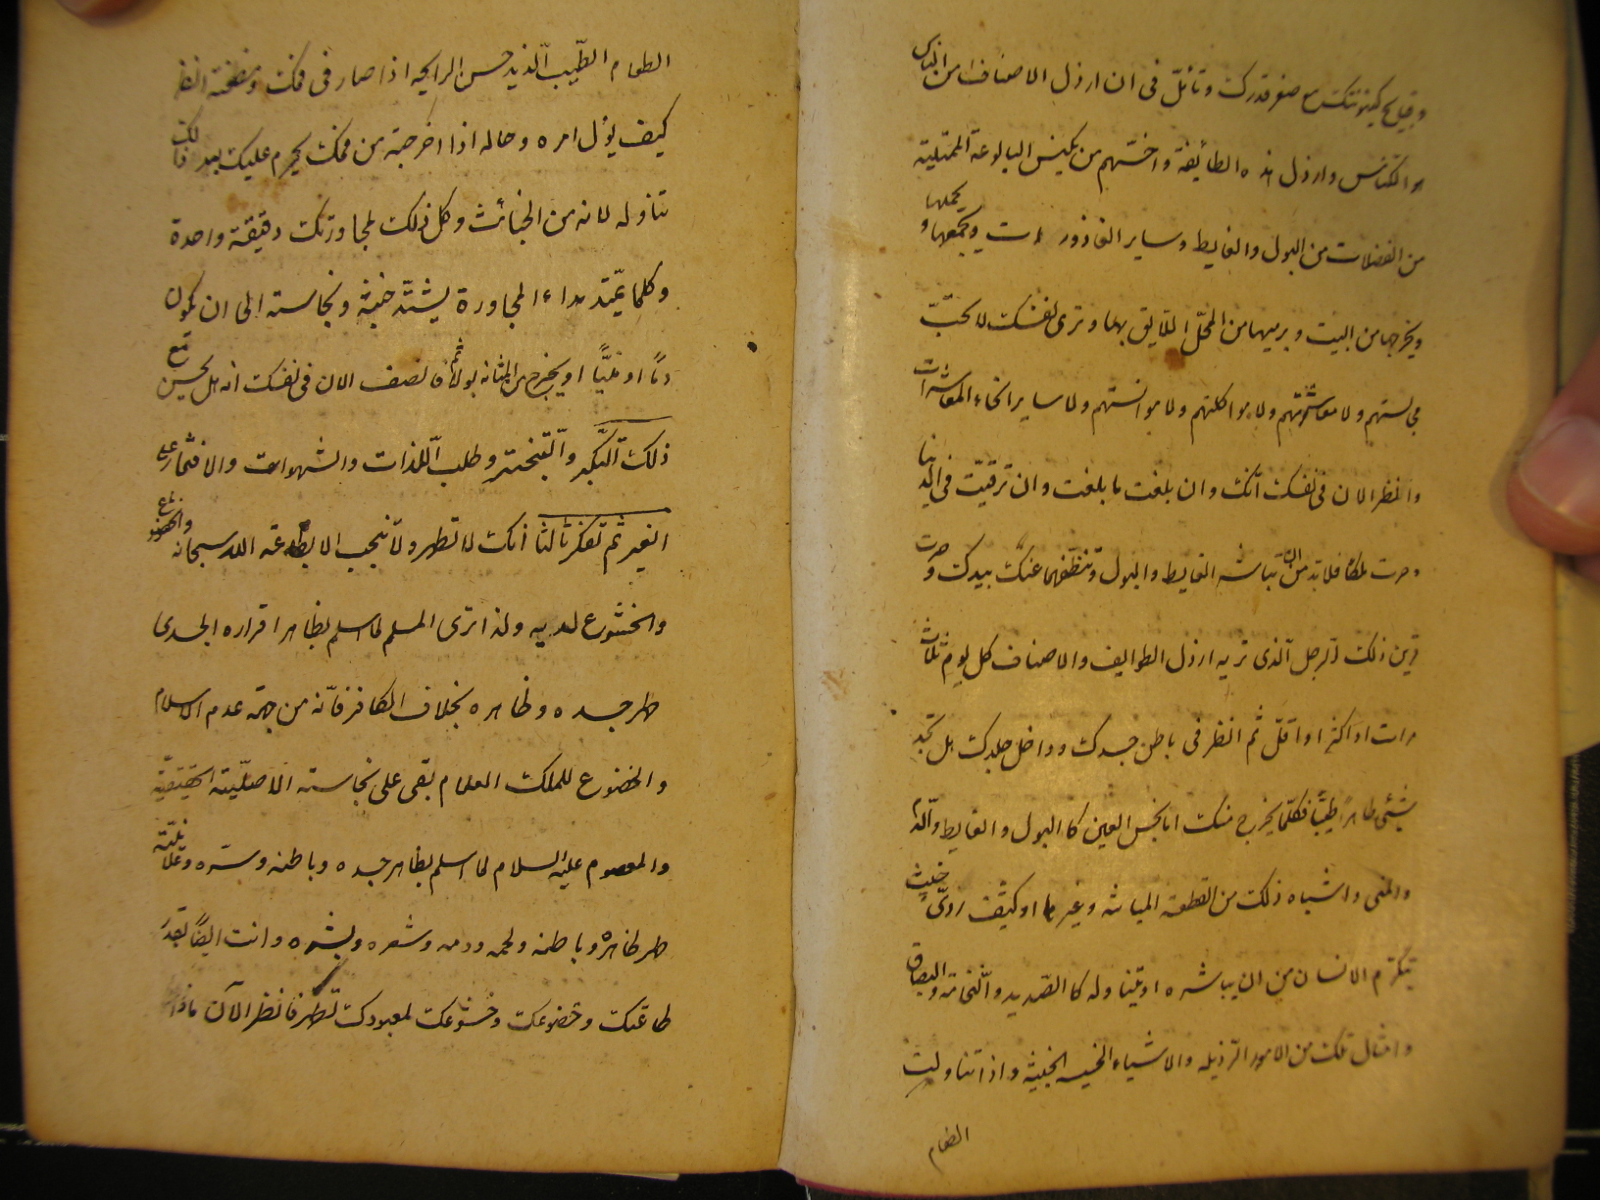 وقبايح كينونتك مع صغر قدرك وتأمّل فى ان ارذل الاصناف من الناس
هو الكنّاس وارذل هذه الطائفة واخسّهم من يكنس البالوعة الممتلية
من الفضلات من البول والغايط وساير القاذورات ويجمعها ويحملها
ويخرجها من البيت ويرميها من المحلّ اللايق بها وترى نفسك لا تحبّ
مجالستهم ولا معاشرتهم ولا مواكلتهم ولا موانستهم ولا ساير انحاء المعاشرات
وانظر الان فى نفسك انّك وان بلغت ما بلغت وان ترقيت فى الدنيا
وصرت ملكا فلا بد من ان تباشر الغايط والبول وتنظفهما عنك بيدك وصرت
قرين ذلك الرجل الذى تريه ارذل الطوايف والاصناف كل يوم ثلاث
مرات او اكثر او اقلّ ثم انظر فى باطن جسدك وداخل جلدك هل تجد
شيئى طاهراً طيّبا فكلّما يخرج منك اما نجس العين كالبول والغايط والدم
والمنى واشباه ذلك من القطعة المبانة وغيرها او كثيف ردىّ خبيث
يتكرّم الانسان من ان يباشره او يتناوله كالصّديد والنّخامة والبصاق
وامثال تلك من الامور الرّذيله والاشياء الخسيسه الخبيثة واذا تناولت
الطعام
الطعام الطّيب الّلذيذ حسن الرايحه اذا صار فى فمك ومضغته انظر
كيف يؤل امره وحاله اذا اخرجته من فمك يحرم عليك بعد ذلك
تناوله لانه من الخبائث وكل ذلك لمجاورتك دقيقة واحدة
وكلما يمتد مداء المجاورة يشتدّ خبثه ونجاسته الى ان يكون
دمًا او منيًّا او يخرج من المثانه بولا ثم فانصف الان فى نفسك انه هل يحسن مع
ذلك التّكبّر والتّبختر وطلب الّلذات والشهوات والافتخار على
الغير ثم تفكر ثالثا انك لا تطهر ولا تنجب الا بطاعة الله سبحانه والخضوع
والخشوع لديه ولذا ترى المسلم لما اسلم بظاهر اقراره الجسدى
طهر جسده وظاهره بخلاف الكافر فانّه من جهة عدم الاسلام
والخضوع للملك العلام بقى على نجاسته الاصلّية الحقيقيّة
والمعصوم عليه السلام لما اسلم بظاهر جسده وباطنه وسرّه وعلانيّته
طهر ظاهره وباطنه ولحمه ودمه وشعره وبشره وانت ايضًا بقدر
طاعتك وخضوعك وخشوعك لمعبودك تطهر فانظر الآن ماذا